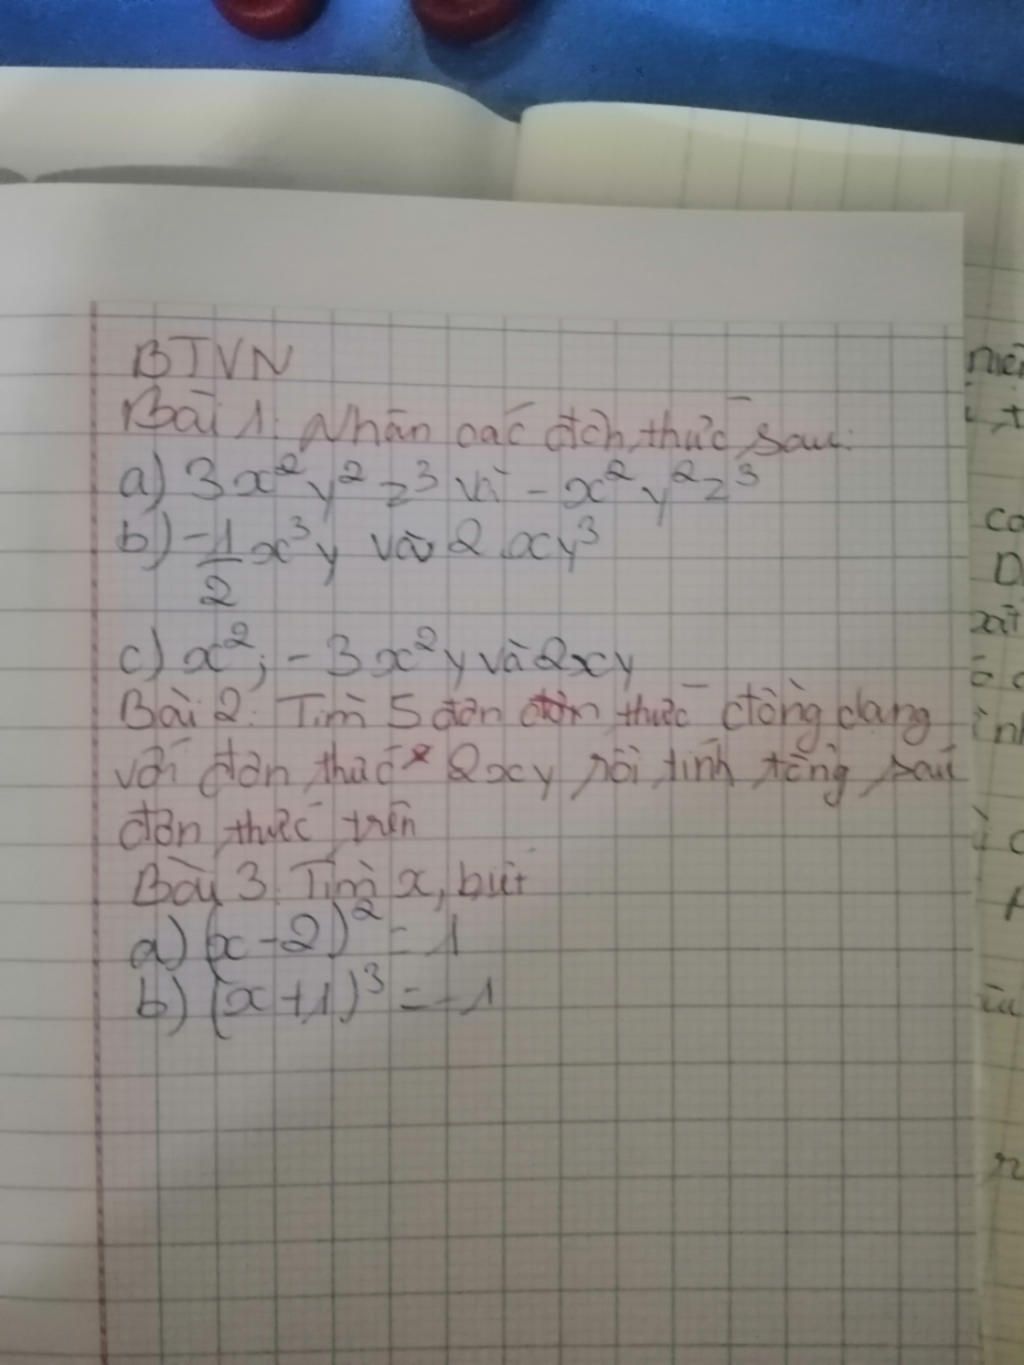 BTVN
Bài 1: Nhân các đơn thức sau:
a) 3x²y²z³ và - x²y²z³
b) -1/2 x³y và 2xy³
c) x²; -3x²y và 2xy
Bài 2: Tìm 5 đơn thức đồng dạng
với đơn thức 2xy rồi tính tổng sáu
đơn thức trên
Bài 3: Tìm x, biết
a) (x-2)² = 1
b) (x+1)³ = -1